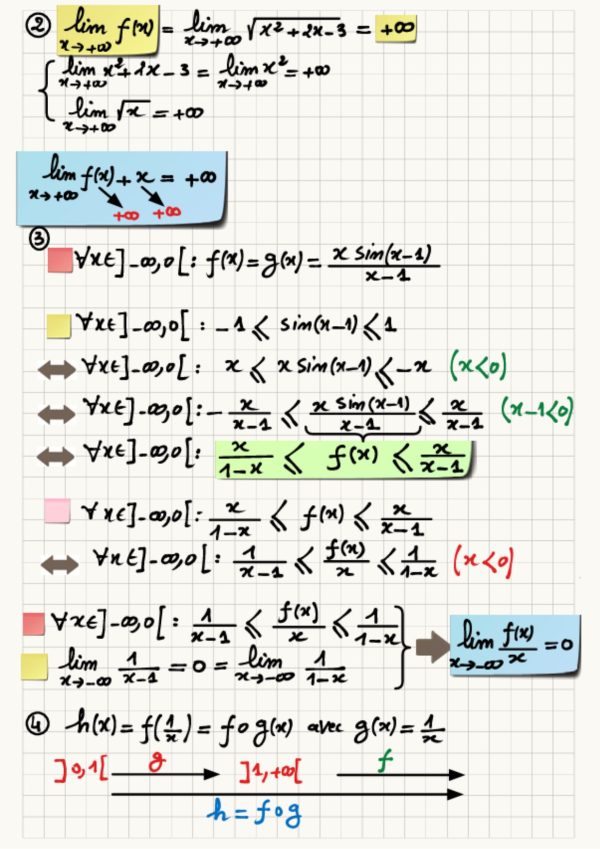 ② lim x→+∞ f(x) = lim x→+∞ √(x²+2x-3) = +∞
{ lim x→+∞ x²+2x-3 = lim x→+∞ x² = +∞
lim x→+∞ √x = +∞
lim x→+∞ f(x) + x = +∞
+∞ +∞
③
∀x∈]-∞,0[ : f(x) = g(x) = (x sin(x-1))/(x-1)
∀x∈]-∞,0[ : -1 ⩽ sin(x-1) ⩽ 1
⇔ ∀x∈]-∞,0[ : x ⩽ x sin(x-1) ⩽ -x (x<0)
⇔ ∀x∈]-∞,0[ : -x/(x-1) ⩽ (x sin(x-1))/(x-1) ⩽ x/(x-1) (x-1<0)
⇔ ∀x∈]-∞,0[ : x/(1-x) ⩽ f(x) ⩽ x/(x-1)
∀x∈]-∞,0[ : x/(1-x) ⩽ f(x) ⩽ x/(x-1)
⇔ ∀x∈]-∞,0[ : 1/(x-1) ⩽ f(x)/x ⩽ 1/(1-x) (x<0)
∀x∈]-∞,0[ : 1/(x-1) ⩽ f(x)/x ⩽ 1/(1-x) }
lim x→-∞ 1/(x-1) = 0 = lim x→-∞ 1/(1-x) ➡ lim x→-∞ f(x)/x = 0
④ h(x) = f(1/x) = f∘g(x) avec g(x) = 1/x
]0,1[ g→ ]1,+∞[ f→
h = f∘g